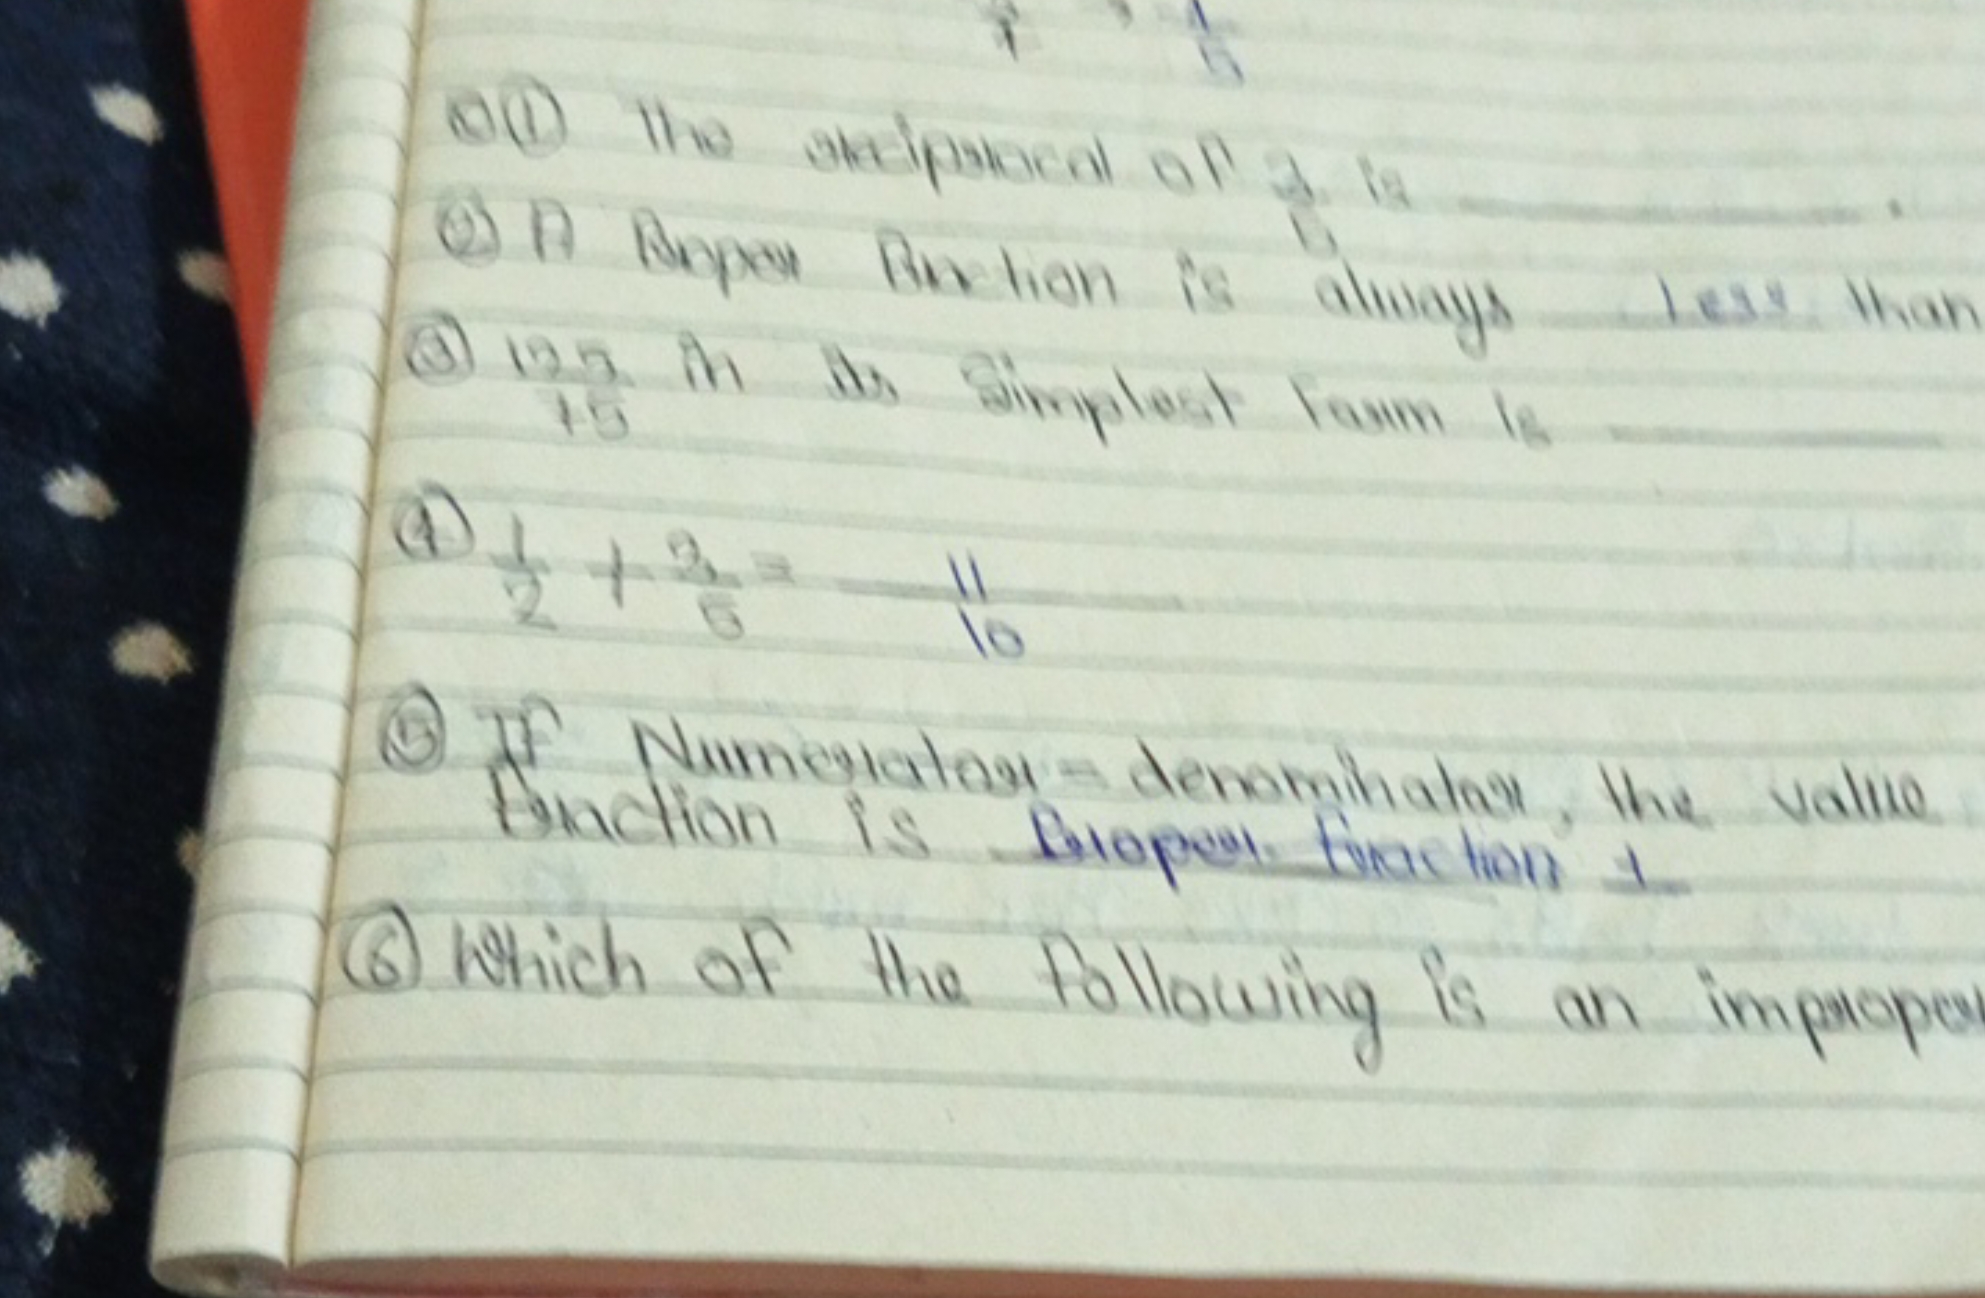 5
① The reciprocal of is
② A Proper Fraction is always Less than
③ 125/75 in its Simplest Form is
④ 1/2 + 3/5 = 11/10
⑤ If Numerator = denominator, the value
Fraction is Proper fraction 1
⑥ Which of the following is an improper